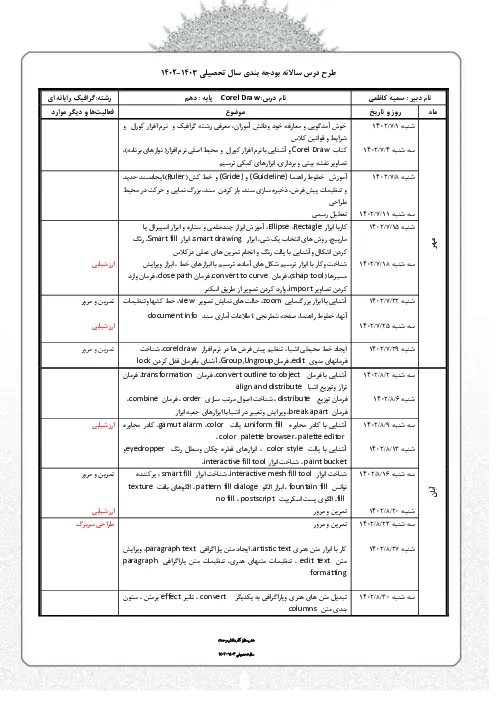 طرح درس سالانه بودجه بندی سال تحصیلی ۱۴۰۳-۱۴۰۲
نام دبیر : سمیه کاظمی نام درس:Corel Draw پایه : دهم رشته:گرافیک رایانه ای
ماه روز و تاریخ موضوع فعالیت‌ها و دیگر موارد
مهر
شنبه ۱۴۰۲/۷/۱ خوش آمدگویی و معارفه خود ودانش آموزان، معرفی رشته گرافیک و نرم افزار کورل و
شرایط و قوانین کلاس
سه شنبه ۱۴۰۲/۷/۴ کتاب Corel Draw و آشنایی با نرم افزار کورل و محیط اصلی نرم افزار( نوارهای برنامه)،
تصاویر نقشه بیتی و برداری، ابزارهای کمکی ترسیم
شنبه ۱۴۰۲/۷/۸ آموزش خطوط راهنما (Guideline) و (Gride) و خط کش (Ruler)،ایجادسند جدید
و تنظیمات پیش فرض، ذخیره سازی سند، باز کردن سند، بزرگ نمایی و حرکت در محیط
طراحی
سه شنبه ۱۴۰۲/۷/۱۱ تعطیل رسمی
شنبه ۱۴۰۲/۷/۱۵ کاربا ابزار Ellipse ،Rectagle، آموزش ابزار چندضلعی و ستاره و ابزار اسپیرال یا
مارپیچ، روش های انتخاب یک شی، ابزار smart drawing، ابزار Smart fill، رنگ
کردن اشکال و آشنایی با پالت رنگ و انجام تمرین های عملی در کلاس
سه شنبه ۱۴۰۲/۷/۱۸ شناخت وکار با ابزار ترسیم شکل های آماده، ترسیم با ابزارهای خط ، ابزار ویرایش ارزشیابی
مسیرها(shap tool)، فرمان convert to curve، فرمان close path، فرمان وارد
کردن تصاویر import، وارد کردن تصویر از طریق اسکنر
شنبه ۱۴۰۲/۷/۲۲ آشنایی با ابزار بزرگنمایی zoom، حالت های نمایش تصویر view، خط کشها وتنظیمات تمرین و مرور
آنها، خطوط راهنما، صفحه شطرنجی ،اطلاعات آماری سند document info
سه شنبه ۱۴۰۲/۷/۲۵ ارزشیابی
شنبه ۱۴۰۲/۷/۲۹ ایجاد خط محیطی اشیا، تنظیم پیش فرض ها در نرم افزار coreldraw، شناخت تمرین و مرور
فرمانهای منوی edit، فرمان Group,Ungroup، آشنای بافرمان قفل کردن lock
آبان
سه شنبه ۱۴۰۲/۸/۲ آشنایی با فرمان convert outline to object، فرمان transformation، فرمان
تراز وتوزیع اشیا align and distribute
شنبه ۱۴۰۲/۸/۶ فرمان توزیع distribute ، شناخت اصول مرتب سازی order ، فرمان combine،
فرمان break apart، ویرایش وتغییر در اشیا با ابزارهای جعبه ابزار
سه شنبه ۱۴۰۲/۸/۹ آشنایی با کادر محاوره uniform fill، پالت color، gamut alarm، کادر محاوره ارزشیابی
palette editor ،color palette browser ،
شنبه ۱۴۰۲/۸/۱۳ آشنایی با پالت color style ، ابزارهای قطره چکان وسطل رنگ eyedropper و تمرین و مرور
paint bucket ، شناخت ابزار interactive fill tool،
سه شنبه ۱۴۰۲/۸/۱۶ شناخت ابزار interactive mesh fill tool، شناخت ابزار smart fill ، پرکننده تمرین و مرور
فواتس fountain fill ، ابزار الگو pattern fill dialoge، الگوهای بافت texture
fill، الگوی پست اسکریپت no fill ، postscript
شنبه ۱۴۰۲/۸/۲۰ تمرین و مرور ارزشیابی
سه شنبه ۱۴۰۲/۸/۲۳ تمرین و مرور طراحی سربرگ
شنبه ۱۴۰۲/۸/۲۷ کار با ابزار متن هنری artistic text، ایجاد متن پاراگرافی paragraph text، ویرایش
متن edit text ، تنظیمات متنهای هنری، تنظیمات متن پاراگرافی paragraph
formatting
سه شنبه ۱۴۰۲/۸/۳۰ تبدیل متن های هنری وپاراگرافی به یکدیگر convert ، تاثیر effect برمتن ، ستون
بندی متن columns